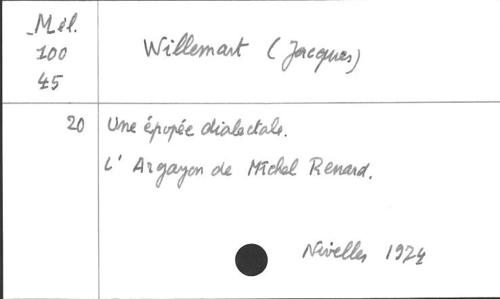 Mél.
100
45
Willemart (Jacques)
20
Une épopée dialectale.
L'Argayon de Michel Renard.
Nivelles 1924